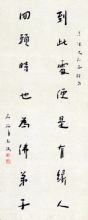 到此處便是有緣人
回頭時也為佛弟子